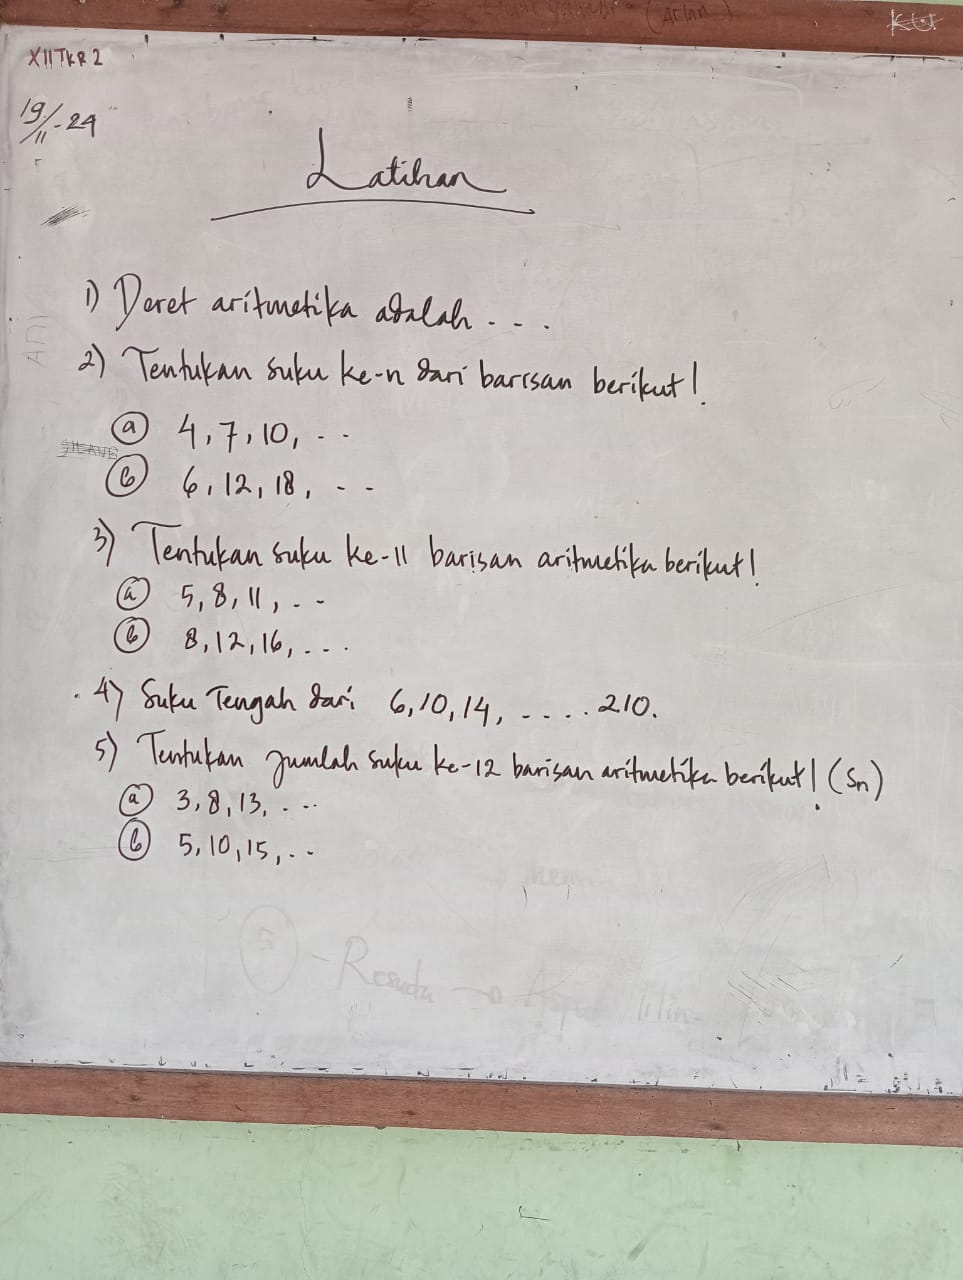 (Arlan)
XII TKR 2
19/11-24
Latihan
1) Deret aritmetika adalah . . .
2) Tentukan suku ke-n dari barisan berikut!
a 4, 7, 10, . .
b 6, 12, 18, . .
3) Tentukan suku ke-11 barisan aritmetika berikut!
a 5, 8, 11, . .
b 8, 12, 16, . . .
4) Suku Tengah dari 6, 10, 14, . . . . 210.
5) Tentukan jumlah suku ke-12 barisan aritmetika berikut! (Sn)
a 3, 8, 13, . . .
b 5, 10, 15, . .